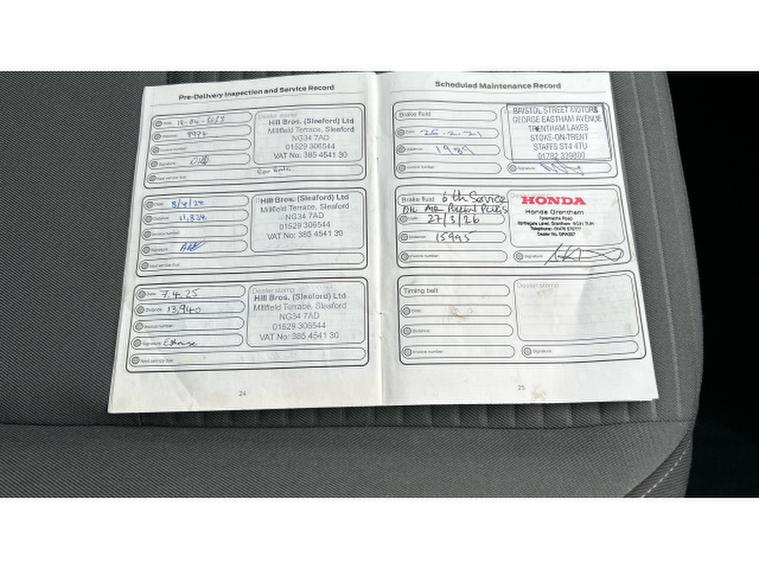 Pre-Delivery Inspection and Service Record
Date 18-04-2023
Distance
Invoice number
Signature
Next service due
Dealer stamp
Hill Bros. (Sleaford) Ltd
Millfield Terrace, Sleaford
NG34 7AD
01529 306544
VAT No: 385 4541 30
Date 8/4/24
Distance 11,834
Invoice number
Signature
Next service due
Hill Bros. (Sleaford) Ltd
Millfield Terrace, Sleaford
NG34 7AD
01529 306544
VAT No: 385 4541 30
Date 7.4.25
Distance 13,940
Invoice number
Signature
Next service due
Dealer stamp
Hill Bros. (Sleaford) Ltd
Millfield Terrace, Sleaford
NG34 7AD
01529 306544
VAT No: 385 4541 30
24
Scheduled Maintenance Record
Brake fluid
Date 26-2-21
Distance 1989
Invoice number
BRISTOL STREET MOTORS
GEORGE EASTHAM AVENUE
TRENTHAM LAKES
STOKE-ON-TRENT
STAFFS ST4 4TU
01782 339600
Signature
Brake fluid 6th Service
OIL AIR POLLEN PLUGS
Date 27/3/26
Distance 15995
Invoice number
HONDA
Honda Grantham
Signature
Timing belt
Date
Distance
Invoice number
Dealer stamp
Signature
25